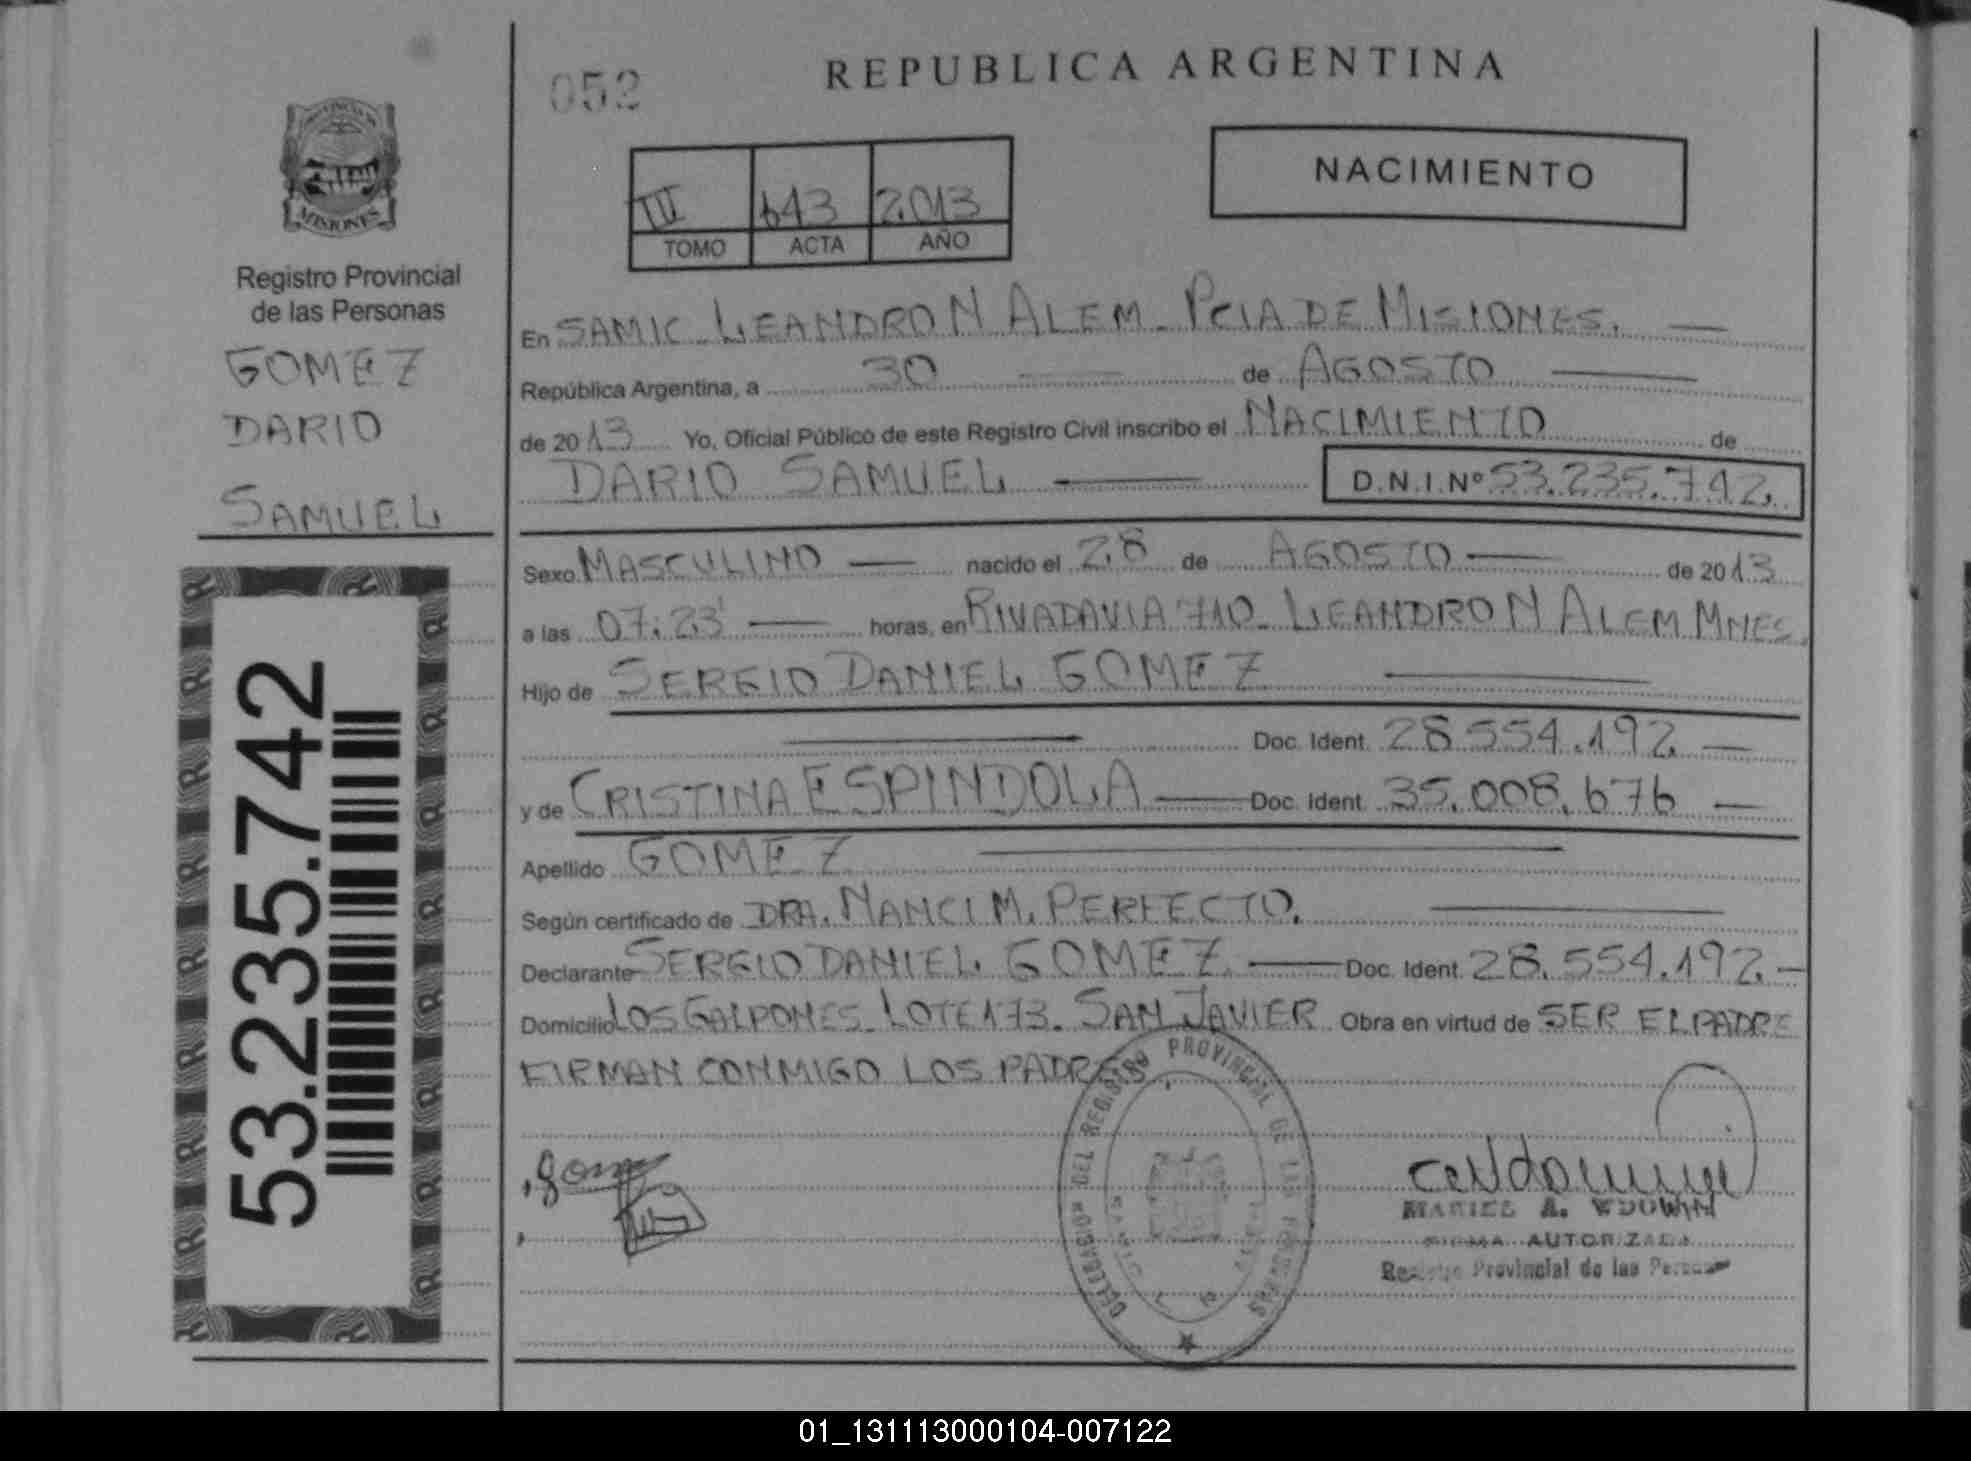 052
REPUBLICA ARGENTINA
NACIMIENTO
III 643 2.013
TOMO ACTA AÑO
PROVINCIA DE
MISIONES
Registro Provincial
de las Personas
GOMEZ
DARIO
SAMUEL
53.235.742
En SAMIC LEANDRO N ALEM - PCIA DE MISIONES.
República Argentina, a 30 de AGOSTO
de 2013 Yo, Oficial Público de este Registro Civil inscribo el NACIMIENTO de
DARIO SAMUEL D.N.I.Nº 53.235.742.
Sexo MASCULINO nacido el 28 de AGOSTO de 2013
a las 07:23 horas, en RIVADAVIA 710 - LEANDRO N ALEM MNES.
Hijo de SERGIO DANIEL GOMEZ
Doc. Ident. 28.554.192
y de CRISTINA ESPINDOLA Doc. Ident. 35.008.676
Apellido GOMEZ
Según certificado de DRA. NANCI M. PERFECTO.
Declarante SERGIO DANIEL GOMEZ Doc. Ident. 28.554.192
Domicilio LOS GALPONES - LOTE 173 - SAN JAVIER Obra en virtud de SER EL PADRE
FIRMAN CONMIGO LOS PADRES
DELEGACION DEL REGISTRO PROVINCIAL DE LAS PERSONAS
MARIEL A. WDOWIN
FIRMA AUTORIZADA
Registro Provincial de las Personas
01_131113000104-007122